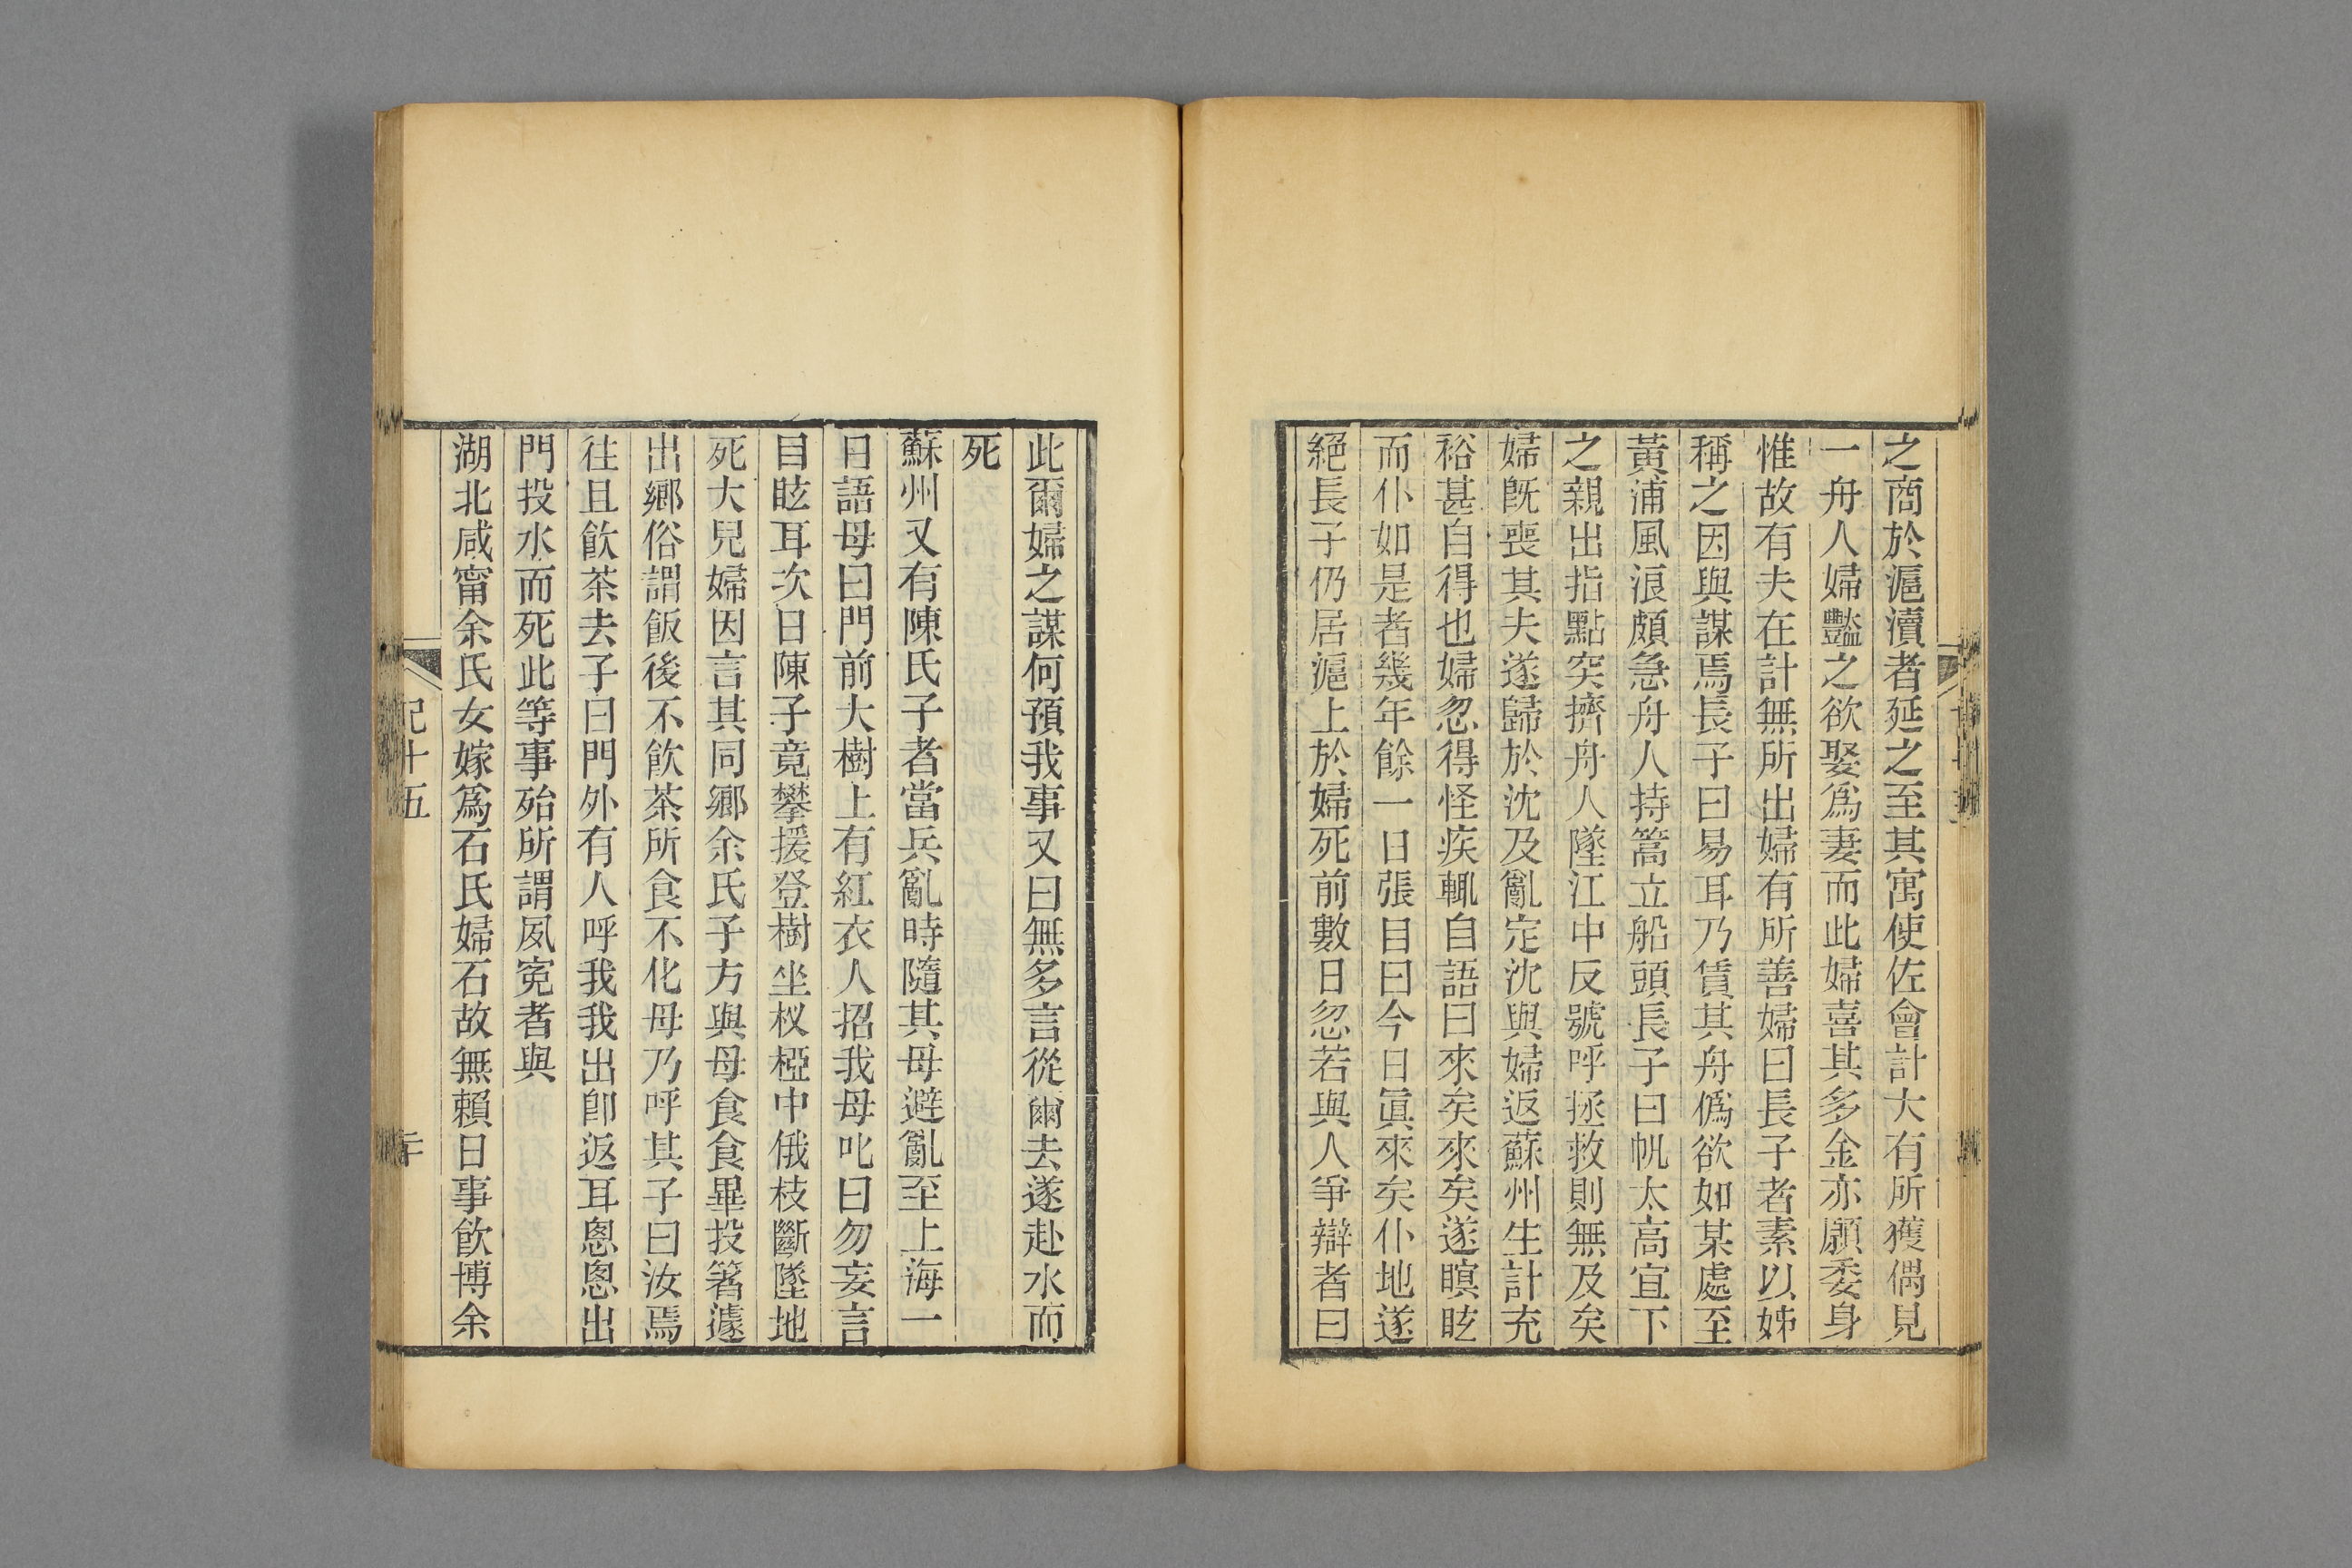 之商於滬瀆者延之至其寓使佐會計大有所獲偶見
一舟人婦豔之欲娶爲妻而此婦喜其多金亦願委身
惟故有夫在計無所出婦有所善婦曰長子者素以姊
稱之因與謀焉長子曰易耳乃賃其舟僞欲如某處至
黃浦風浪頗急舟人持篙立船頭長子曰帆太高宜下
之親出指點突擠舟人墜江中反號呼拯救則無及矣
婦旣喪其夫遂歸於沈及亂定沈與婦返蘇州生計充
裕甚自得也婦忽得怪疾輒自語曰來矣來矣遂瞑眩
而仆如是者幾年餘一日張目曰今日眞來矣仆地遂
絕長子仍居滬上於婦死前數日忽若與人爭辯者曰
此爾婦之謀何預我事又曰無多言從爾去遂赴水而
死
蘇州又有陳氏子者當兵亂時隨其母避亂至上海一
日語母曰門前大樹上有紅衣人招我母叱曰勿妄言
目眩耳次日陳子竟攀援登樹坐杈椏中俄枝斷墜地
死大兒婦因言其同鄉余氏子方與母食食畢投箸遽
出鄉俗謂飯後不飮茶所食不化母乃呼其子曰汝焉
往且飮茶去子曰門外有人呼我我出卽返耳悤悤出
門投水而死此等事殆所謂夙冤者與
湖北咸甯余氏女嫁爲石氏婦石故無賴日事飮博余
記十五
二十